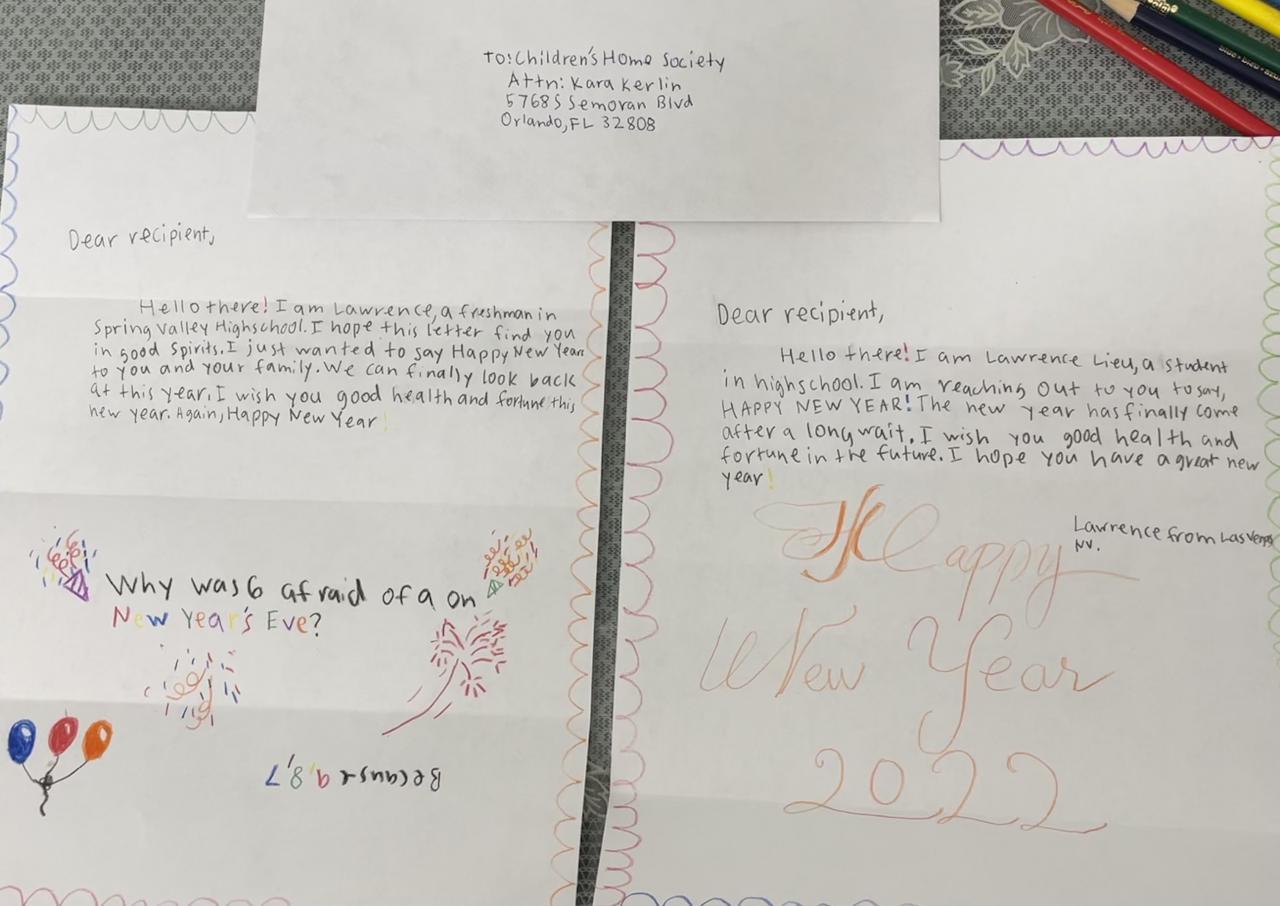 To: Children's Home Society
Attn: Kara Kerlin
5768 S Semoran Blvd
Orlando, FL 32808
Dear recipient,
Hello there! I am Lawrence, a freshman in
Spring Valley Highschool. I hope this letter find you
in good spirits. I just wanted to say Happy New Year
to you and your family. We can finally look back
at this year. I wish you good health and fortune this
new year. Again, Happy New Year!
Why was 6 afraid of a on
New Year's Eve?
Because 9, 8, 7
Dear recipient,
Hello there! I am Lawrence Lieu, a student
in highschool. I am reaching out to you to say,
HAPPY NEW YEAR! The new year has finally come
after a long wait. I wish you good health and
fortune in the future. I hope you have a great new
year!
Lawrence from Las Vegas
NV.
Happy
New Year
2022